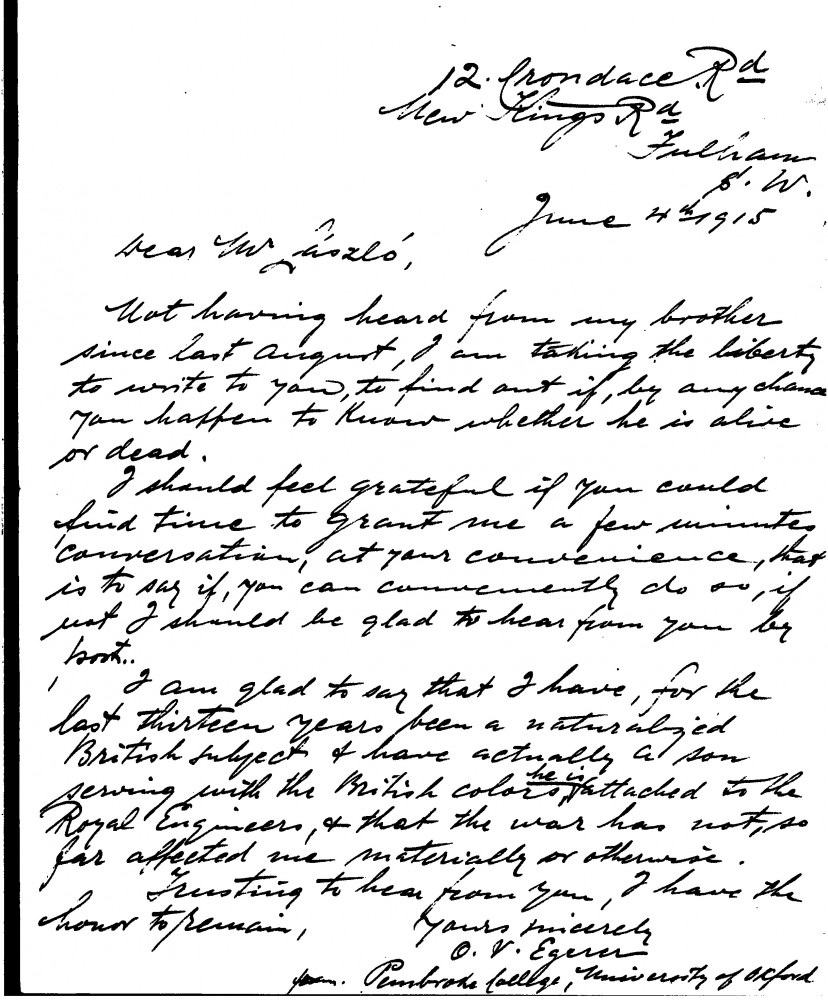 12. Crondace Rd
New Kings Rd
Fulham
S. W.
June 4th 1915
Dear Mr László,
Not having heard from my brother
since last August, I am taking the liberty
to write to you, to find out if, by any chance
you happen to know whether he is alive
or dead.
I should feel grateful if you could
find time to grant me a few minutes
conversation, at your convenience, that
is to say if, you can conveniently do so, if
not I should be glad to hear from you by
post..
I am glad to say that I have, for the
last thirteen years been a naturalized
British subject & have actually a son
serving with the British colors, he is attached to the
Royal Engineers, & that the war has not, so
far affected me materially or otherwise.
Trusting to hear from you, I have the
honor to remain, Yours sincerely
O. V. Egerer
Pembroke College, University of Oxford